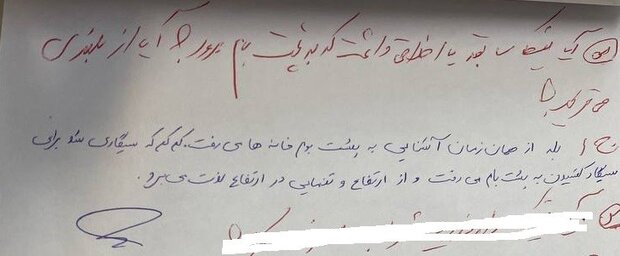 س) آیا نیکا سابقه یا اخلاقی داشت که به پشت بام برود؟ آیا از بلندی
می ترسید؟
ج) بله از همان زمان آشنایی به پشت بوم خانه های رفت. کم کم که سیگاری شد برای
سیگار کشیدن به پشت بام می رفت و از ارتفاع و تنهایی در ارتفاع لذت می برد.
س)